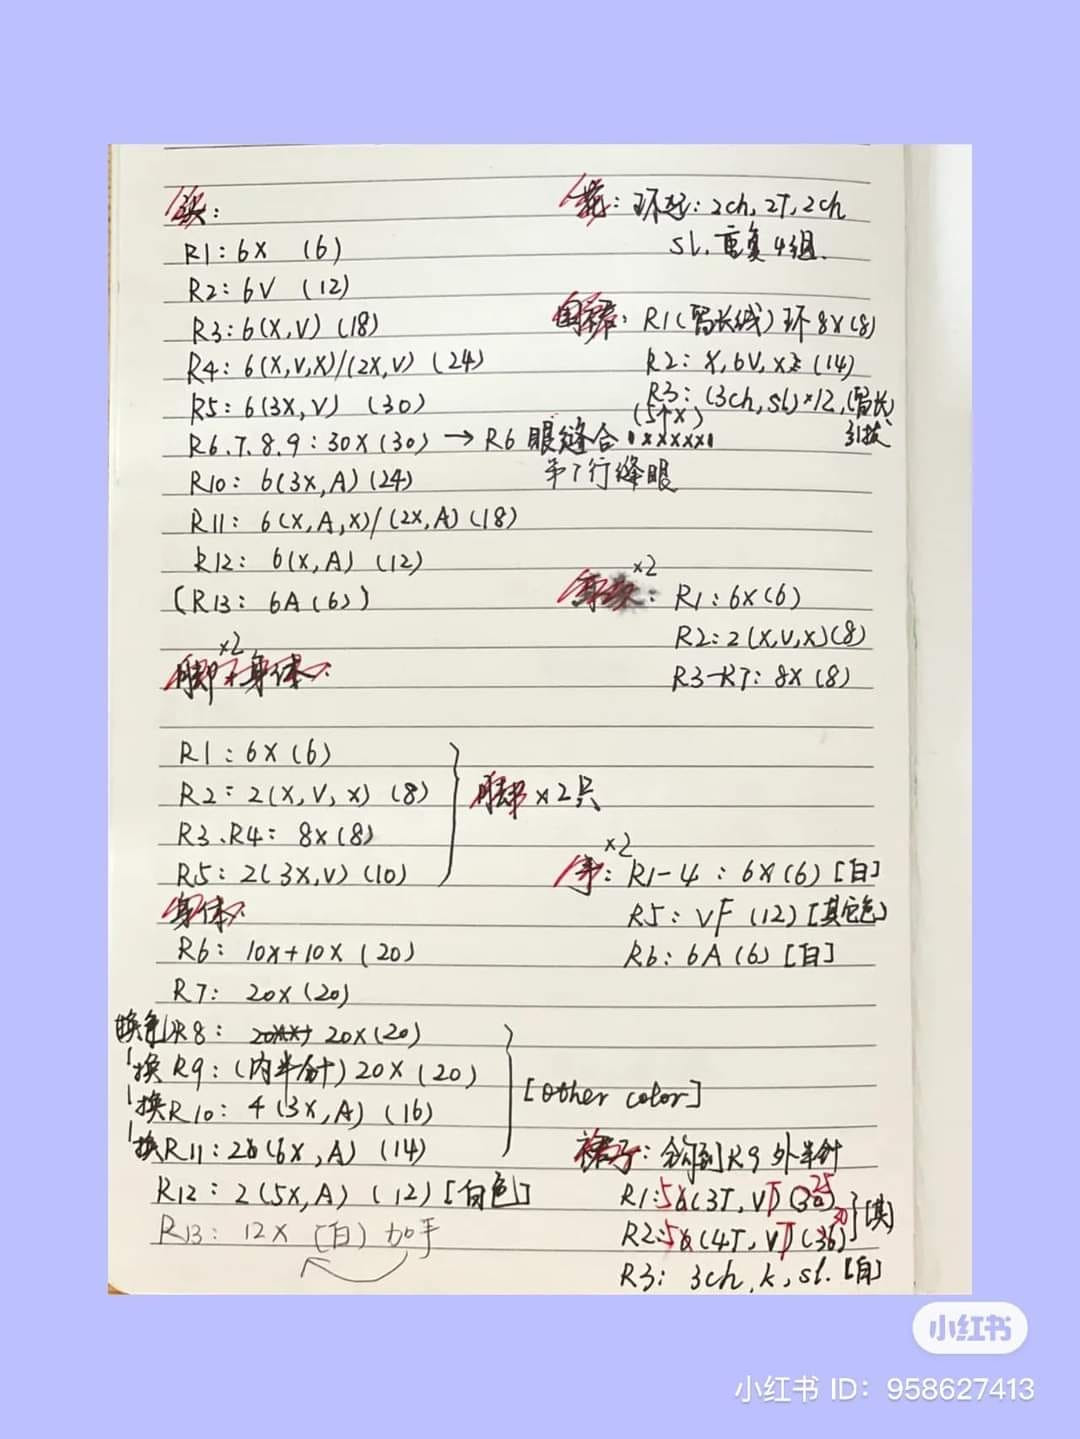 头:
R1: 6X (6)
R2: 6V (12)
R3: 6(X,V) (18)
R4: 6(X,V,X)/(2X,V) (24)
R5: 6(3X,V) (30)
R6.7.8.9: 30X(30) → R6 眼缝合
第7行缝眼
R10: 6(3X,A)(24)
R11: 6(X,A,X)/(2X,A)(18)
R12: 6(X,A) (12)
(R13: 6A(6))
×2
脚+身体:
R1: 6X(6)
R2: 2(X,V,X) (8)
R3.R4: 8X(8)
R5: 2(3X,V)(10)
脚×2只
身体:
R6: 10X+10X (20)
R7: 20X(20)
换色 R8: 20X(20)
换 R9: (内半针)20X(20)
换 R10: 4(3X,A)(16)
换 R11: 2(6X,A)(14)
[other color]
R12: 2(5X,A) (12)[白色]
R13: 12X [白] 加手
花: 环起: 2ch, 2T, 2ch
sl. 重复4组.
R1(留长线)环8X(8)
R2: X,6V,X (14)
R3: (3ch,sl)×12,(留长)
引拔
(5个X)
×2
R1: 6X(6)
R2: 2(X,V,X)(8)
R3-R7: 8X(8)
×2
手: R1-4: 6X(6)[白]
R5: VF (12)[其它色]
R6: 6A(6)[白]
裙子: 钩到R9外半针
R1: 5(3T,VT)25
R2: 5(4T,VT)30
[其]
R3: 3ch,k,sl. [白]
小红书
小红书 ID: 958627413